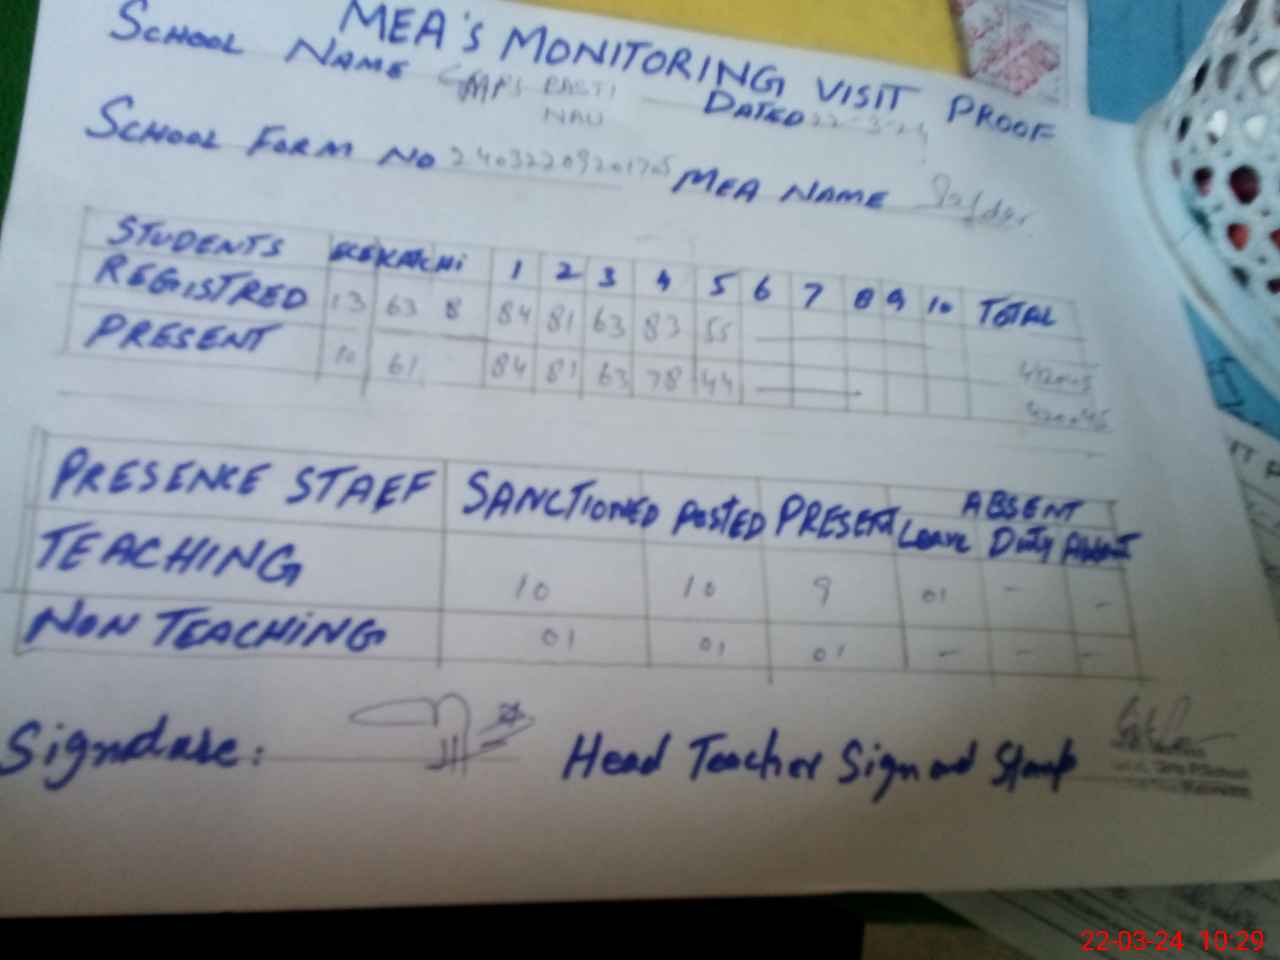 MEA'S MONITORING VISIT PROOF
SCHOOL NAME GMPS BASTI NAU DATED 22-3-24
SCHOOL FORM NO MEA NAME Safdar
STUDENTS KACHI 1 2 3 4 5 6 7 8 9 10 TOTAL
REGISTRED 13 63 8 84 81 63 83 55
PRESENT 10 61 84 81 63 78 44
PRESENCE STAFF SANCTIONED POSTED PRESENT ABSENT
Leave Duty Absent
TEACHING 10 10 9 01 - -
NON TEACHING 01 01 01 - - -
Signature:
Head Teacher Sign and Stamp
22-03-24 10:29